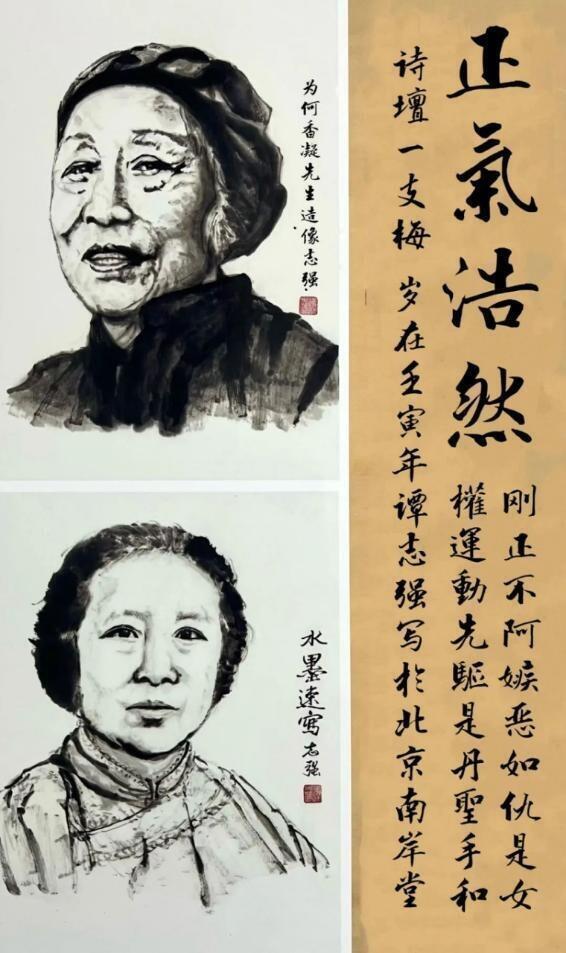 正氣浩然
刚正不阿嫉恶如仇是女
權運動先驅是丹聖手和
诗壇一支梅 岁在壬寅年谭志强写於北京南岸堂
为何香凝先生造像志强
水墨速寫志强